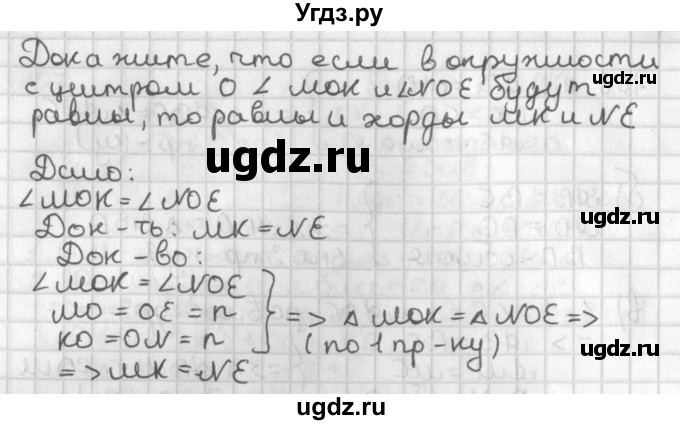 Угдз.ру
Докажите, что если в окружности
с центром О ∠ МОК и ∠NОЕ будут
равны, то равны и хорды МК и NЕ
Дано:
∠МОК = ∠NОЕ
Док-ть: МК = NЕ
Док-во:
∠МОК = ∠NОЕ
МО = ОЕ = r
КО = ОN = r
=> △ МОК = △ NОЕ =>
(по 1 пр-ку)
=> МК = NЕ
ugdz.ru
ugdz.ru
ugdz.ru
ugdz.ru
ugdz.ru
ugdz.ru
ugdz.ru
ugdz.ru